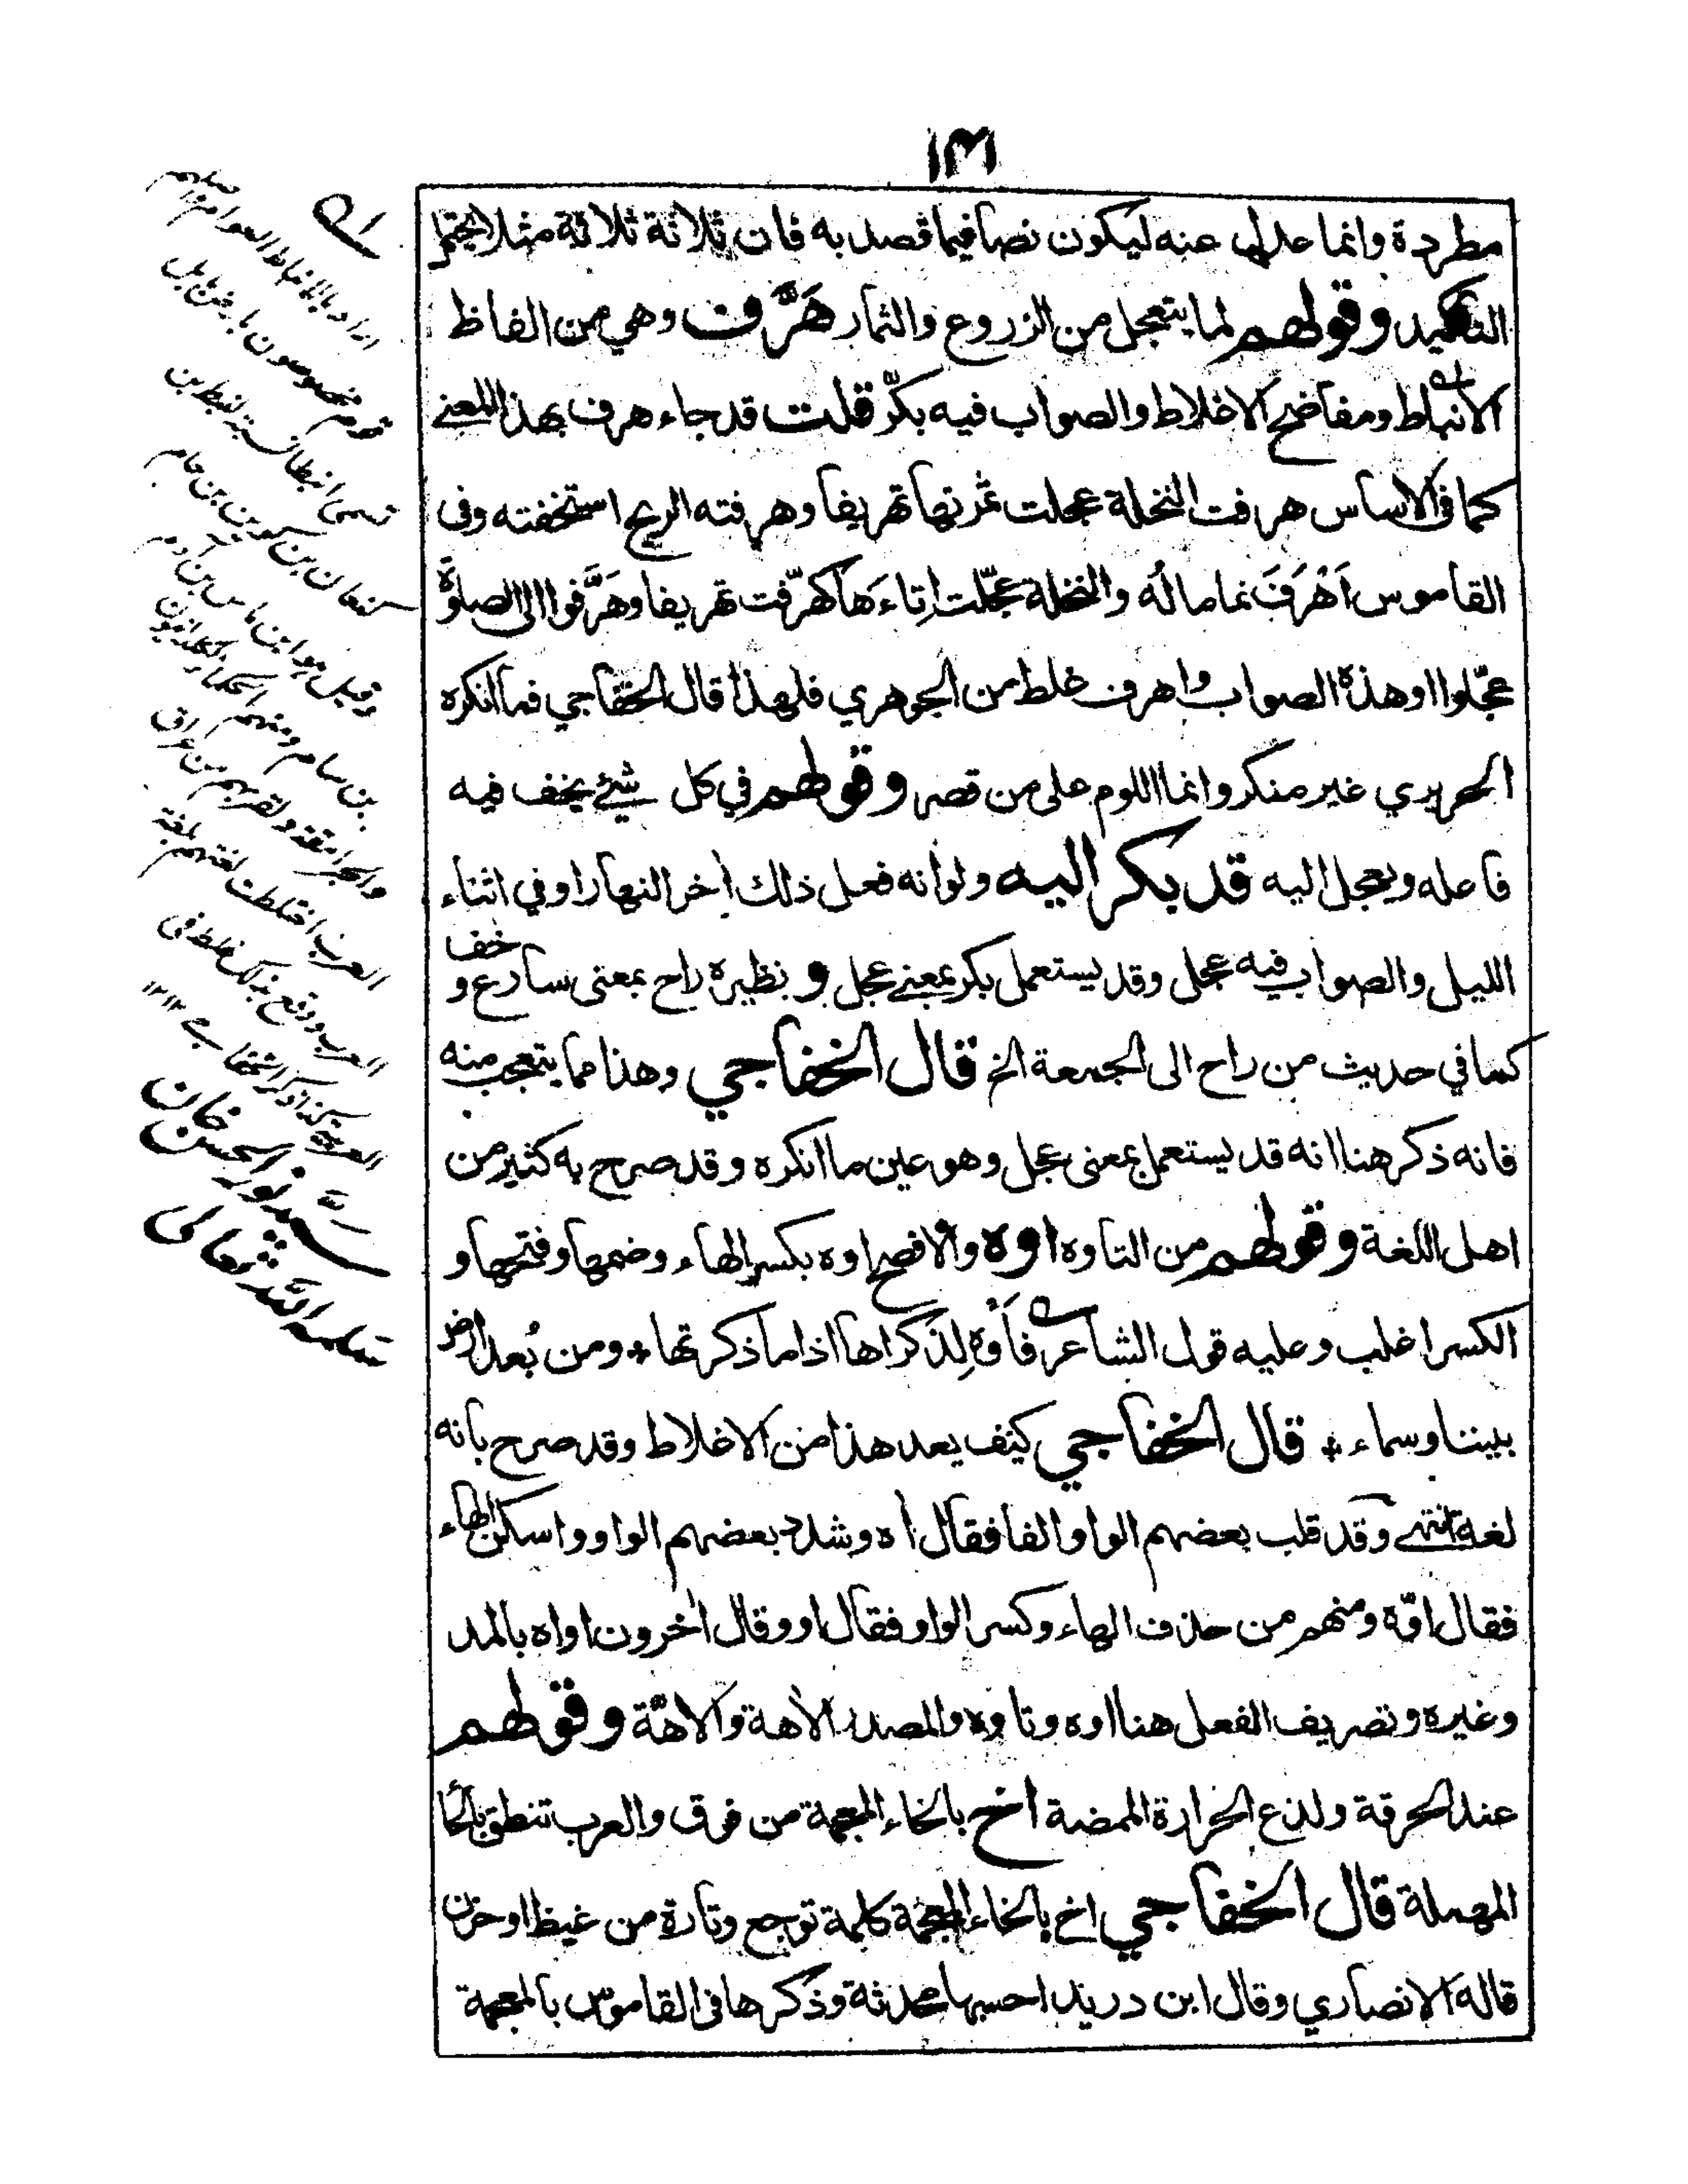 ١٣١
مطردة وانما عدل عنه ليكون نصا فيما قصد به فان ثلاثة ثلاثة مثلا يحتمل
التاكيد وقولهم لما يتعجل من الزروع والثمار هَرَّف وهي من الفاظ
الانباط ومفاضح الاغلاط والصواب فيه بكّر قلت قد جاء هرف بهذا المعنے
كما فى الاساس هرفت النخلة عجلت ثمرتها تهريفا وهرفته الريح استخفته وفى
القاموس اَهْرَفَ نما مالُه والنخلة عجّلت اِتاءَها كهرّفت تهريفا وهَرَّفوا الى الصلوٰة
عجّلوا او هذه الصواب واهرف غلط من الجوهري فلهذا قال الخفاجي فما انكره
الحريري غير منكر وانما اللوم على من قصر وقولهم في كل شيئ يخف فيه
فاعله ويعجل اليه قد بكر اليه ولو انه فعل ذلك اٰخر النهار او في اثناء
الليل والصواب فيه عجل وقد يستعمل بكر بمعنے عجل و نظيره راح بمعنى سارع و خف
كما في حديث من راح الى الجمعة الخ قال الخفاجي وهذا مما يتعجب منه
فانه ذكر هنا انه قد يستعمل بمعنى عجل وهو عين ما انكره وقد صرح به كثير من
اهل اللغة وقولهم من التاوه اوه والافصح اوه بكسر الهاء وضمها وفتحها و
الكسر اغلب وعليه قول الشاعر فاَوْهِ لِذكراها اذا ما ذكرتها * ومن بُعد ارض
بيننا وسماء * قال الخفاجي كيف يعد هذا من الاغلاط وقد صرح بانه
لغة انتهے وقد قلب بعضهم الواو الفا فقال اٰه وشدد بعضهم الواو واسكن الهاء
فقال اوّه ومنهم من حذف الهاء وكسر الواو فقال او وقال اٰخرون اواه بالمد
وغيره وتصريف الفعل هنا اوه وتاوه والمصدر الاٰهة والاهّة وقولهم
عند الحرقة ولذع الحرارة الممضة اخ بالخاء المعجمة من فوق والعرب تنطق بالحا
المهملة قال الخفاجي اخ بالخاء المعجمة كلمة توجع وتارة من غيظ او حزن
قاله الانصاري وقال ابن دريد احسبها محدثة وذكرها فى القاموس بالمعجمة
اراد بالانباط العوام واصلهم
قوم مخصوصون بارض بابل
تسمى انبطا نسبة لنبط بن
كنعان بن كوش بن حام
وقيل هو ابن ماش بن ارم
بن سام ومنهم
العرب اختلطت لغتهم بلغة
العرب ووقع بذلك غلط فى
العربية كذا ذكر الخفاجے ١٢
سيد نور الحسن خان
سلمه الله تعالى